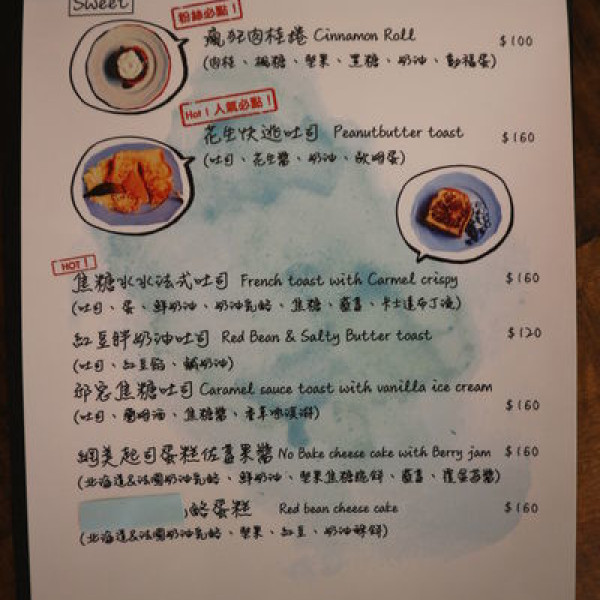 Sweet
粉絲必點！
瘋狂肉桂捲 Cinnamon Roll $100
(肉桂、楓糖、堅果、黑糖、奶油、動福蛋)
Hot！人氣必點！
花生快逃吐司 Peanutbutter toast $160
(吐司、花生醬、奶油、歐姆蛋)
HOT！
焦糖水水法式吐司 French toast with Carmel crispy $160
(吐司、蛋、鮮奶油、奶油乳酪、焦糖、藍莓、卡士達布丁液)
紅豆鮮奶油吐司 Red Bean & Salty Butter toast $120
(吐司、紅豆餡、鹹奶油)
焦糖吐司 Caramel sauce toast with vanilla ice cream
$160
(吐司、蘭姆酒、焦糖醬、香草冰淇淋)
網美起司蛋糕佐莓果醬 No Bake cheese cake with Berry jam $160
(北海道&法國奶油乳酪、鮮奶油、堅果焦糖脆餅、藍莓、覆盆莓醬)
酪蛋糕 Red bean cheese cake $160
(北海道&法國奶油乳酪、堅果、紅豆、奶油酥餅)